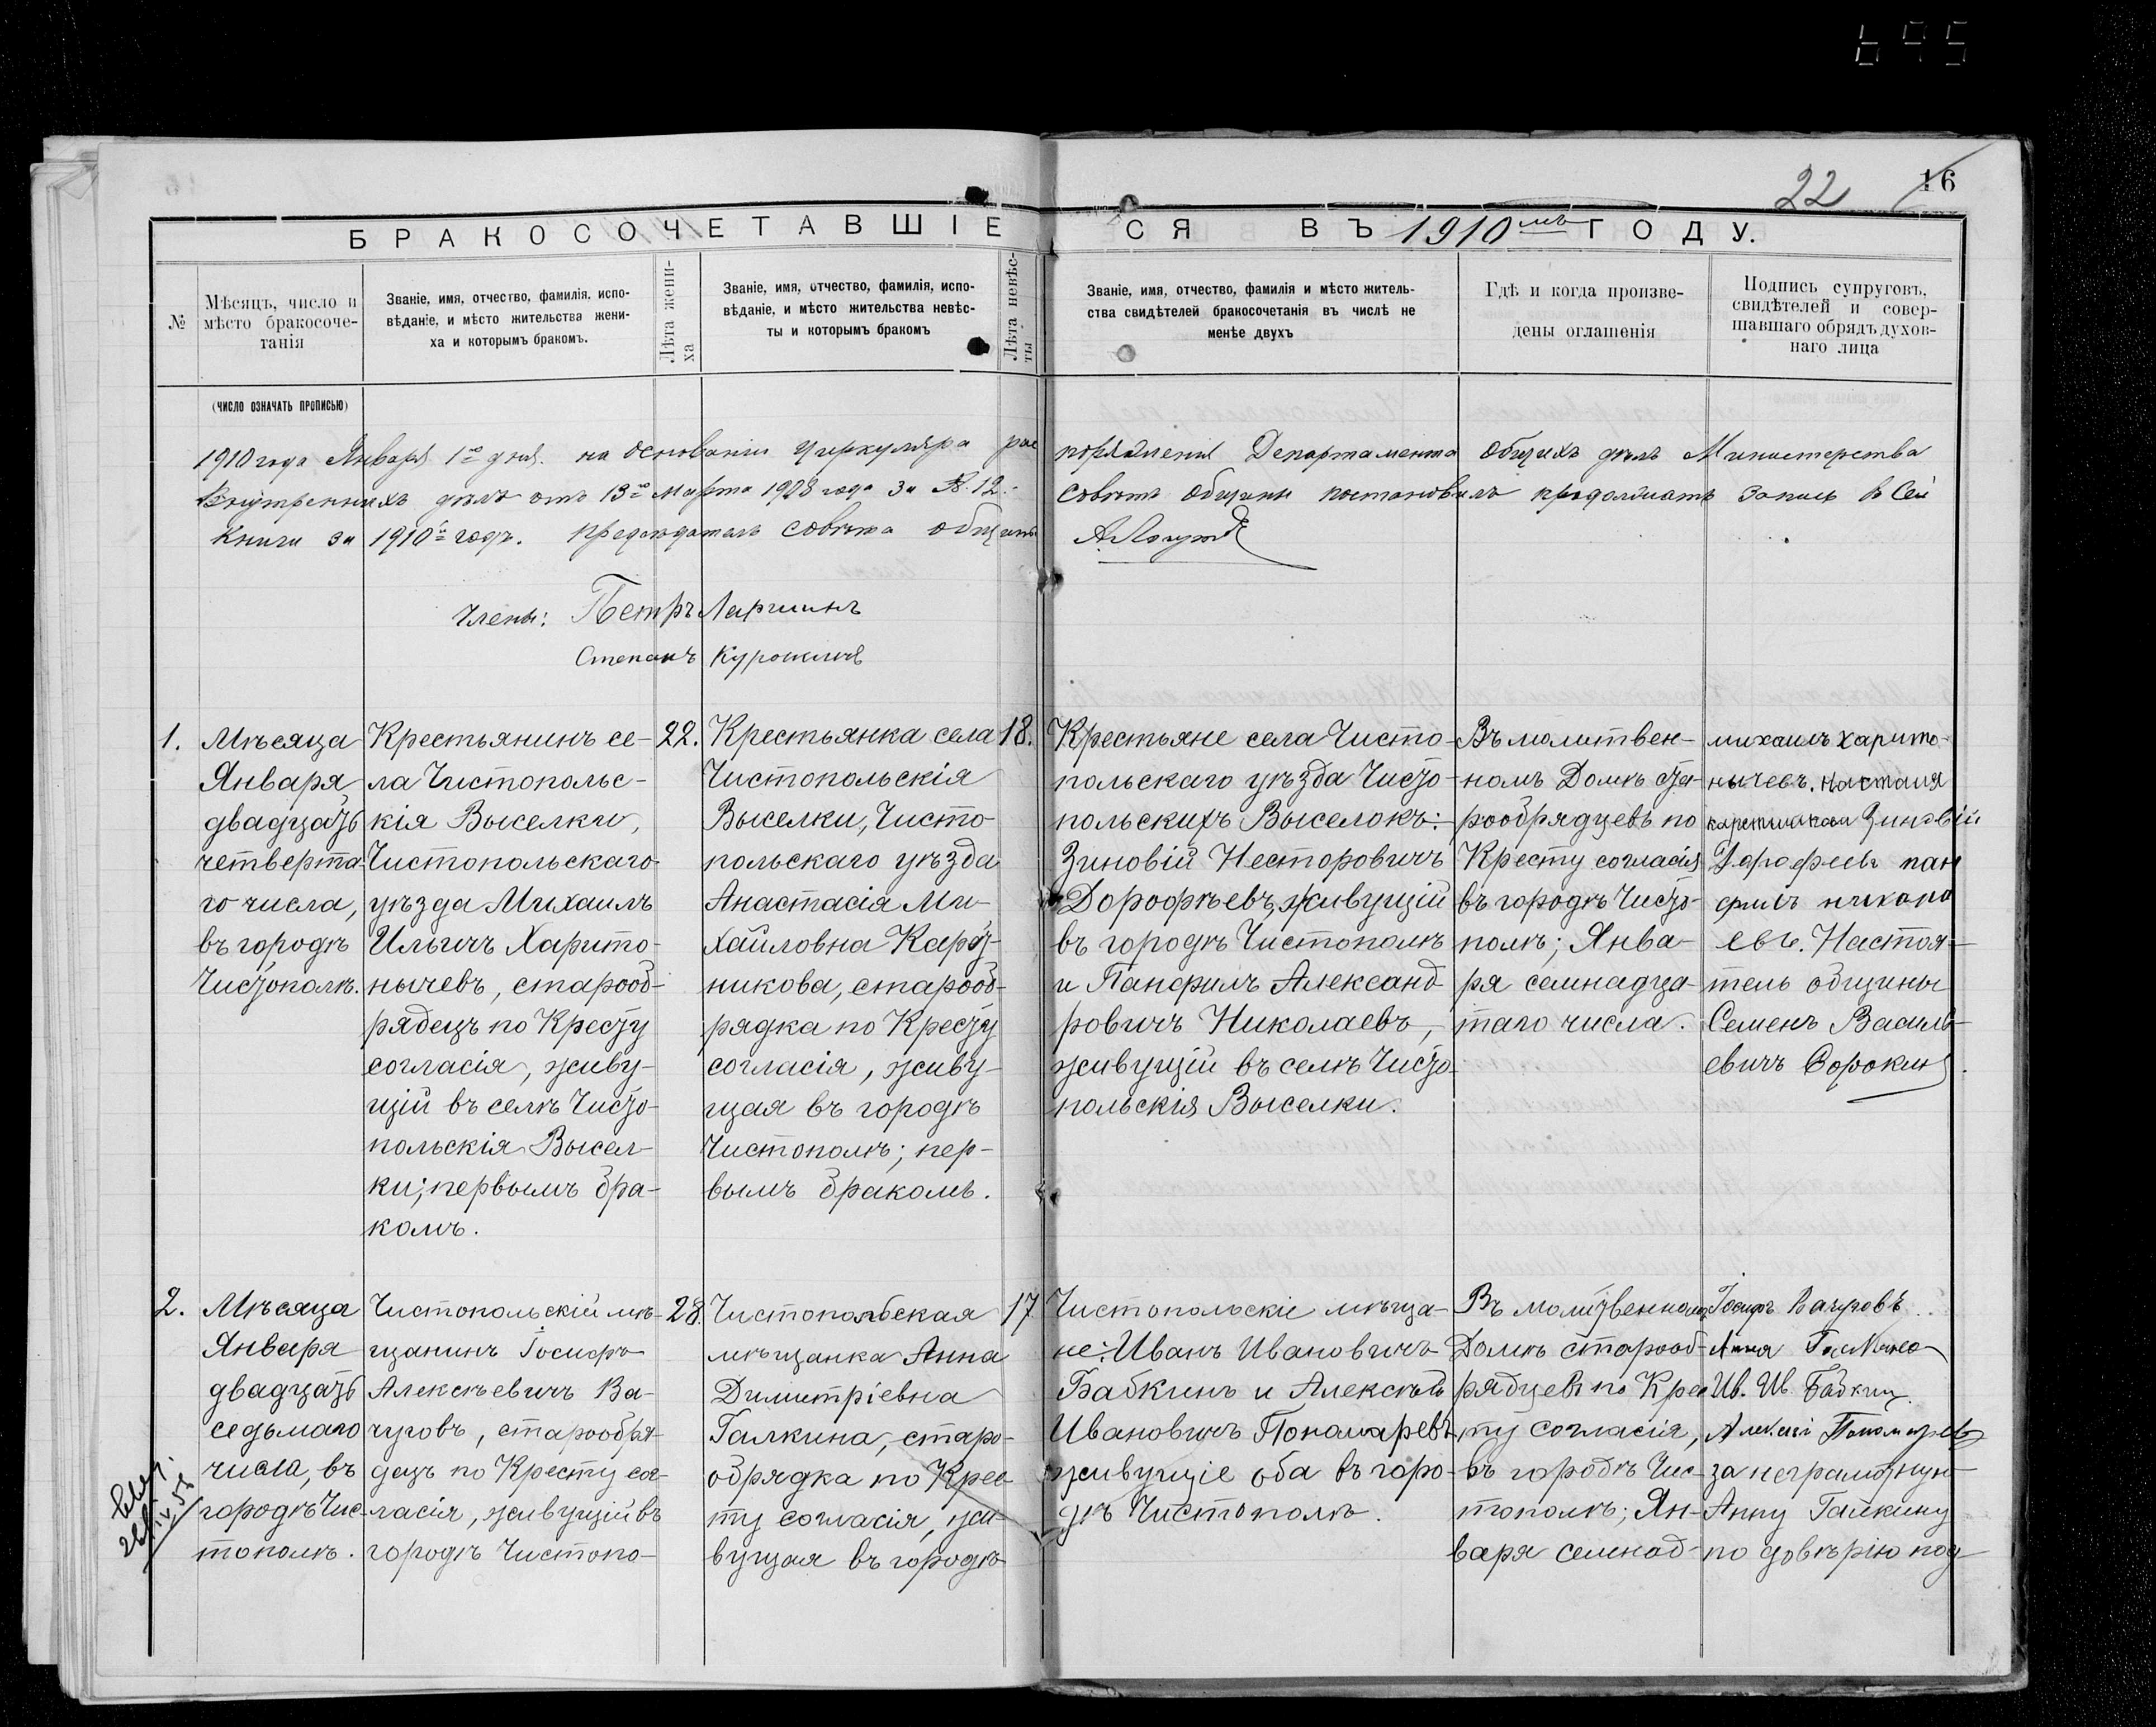 695
22
16
БРАКОСОЧЕТАВШІЕСЯ ВЪ 1910мъ ГОДУ.
№
Мѣсяцъ, число и
мѣсто бракосоче-
танія
Званіе, имя, отчество, фамилія, испо-
вѣданіе, и мѣсто жительства жени-
ха и которымъ бракомъ.
Лѣта жени-
ха
Званіе, имя, отчество, фамилія, испо-
вѣданіе, и мѣсто жительства невѣс-
ты и которымъ бракомъ
Лѣта невѣс-
ты
Званіе, имя, отчество, фамилія и мѣсто житель-
ства свидѣтелей бракосочетанія въ числѣ не
менѣе двухъ
Гдѣ и когда произве-
дены оглашенія
Подпись супруговъ,
свидѣтелей и совер-
шавшаго обрядъ духов-
наго лица
(ЧИСЛО ОЗНАЧАТЬ ПРОПИСЬЮ)
1910 года Января 1го дня. на основаніи Циркуляра рас поряженія Департамента Общихъ дѣлъ Министерства
Внутреннихъ дѣлъ отъ 13го Марта 1908 года за № 12. Совѣтъ Общины постановилъ продолжать запись в Сей
Книги за 1910й годъ. Предсѣдатель Совѣта общины
Члены: Петръ Ларшинъ
Степанъ Курошинъ
1.
Мѣсяца
Января
двадцать
четверта-
го числа,
въ городѣ
Чистополѣ.
Крестьянинъ се-
ла Чистопольс-
кія Выселки,
Чистопольскаго
уѣзда Михаилъ
Ильичъ Харито-
нычевъ, старооб-
рядецъ по Кресту
согласія, живу-
щій въ селѣ Чисто-
польскія Высел-
ки; первымъ бра-
комъ.
22.
Крестьянка села
Чистопольскія
Выселки, Чисто-
польскаго уѣзда
Анастасія Ми-
хайловна Карет-
никова, старооб-
рядка по Кресту
согласія, живу-
щая въ городѣ
Чистополѣ; пер-
вымъ бракомъ.
18.
Крестьяне села Чисто-
польскаго уѣзда Чисто-
польскихъ Выселокъ:
Зиновій Несторовичъ
Дорофѣевъ, живущій
въ городѣ Чистополѣ
и Панфилъ Александ
ровичъ Николаевъ,
живущій въ селѣ Чисто-
польскія Выселки.
Въ молитвен-
номъ Домѣ Ста-
рообрядцевъ по
Кресту согласія
въ городѣ Чисто-
полѣ; Янва-
ря семнадца-
таго числа.
михаилъ харито-
нычевъ. Настасия
Зиновій
Дорофеевъ пан
филъ никола
евъ. Настоя-
тель общины
Семенъ Василь-
евичъ Сорокинъ.
2.
Мѣсяца
Января
двадцать
седьмаго
числа, въ
городѣ Чис-
тополѣ.
Чистопольскій мѣ-
щанинъ Іосифъ
Алексѣевичъ Ва-
чуговъ, старообря-
децъ по Кресту сог-
ласія, живущій въ
городѣ Чистопо-
28.
Чистопольская
мѣщанка Анна
Димитріевна
Галкина, старо-
обрядка по Крес-
ту согласія, жи-
вущая въ городѣ
17
Чистопольскіе мѣща-
не: Иванъ Ивановичъ
Бабкинъ и Алексѣй
Ивановичъ Пономаревъ
живущіе оба въ горо-
дѣ Чистополѣ.
Въ молитвенномъ
Домѣ старооб-
рядцевъ по Крес-
ту согласія,
въ городѣ Чис-
тополѣ; Ян-
варя семнад-
Іосифъ Вачуговъ
Анна
Ив. Ив. Бабкин.
Алексѣй Пономаревъ
за неграмотную
Анну Галкину
по довѣрію под-